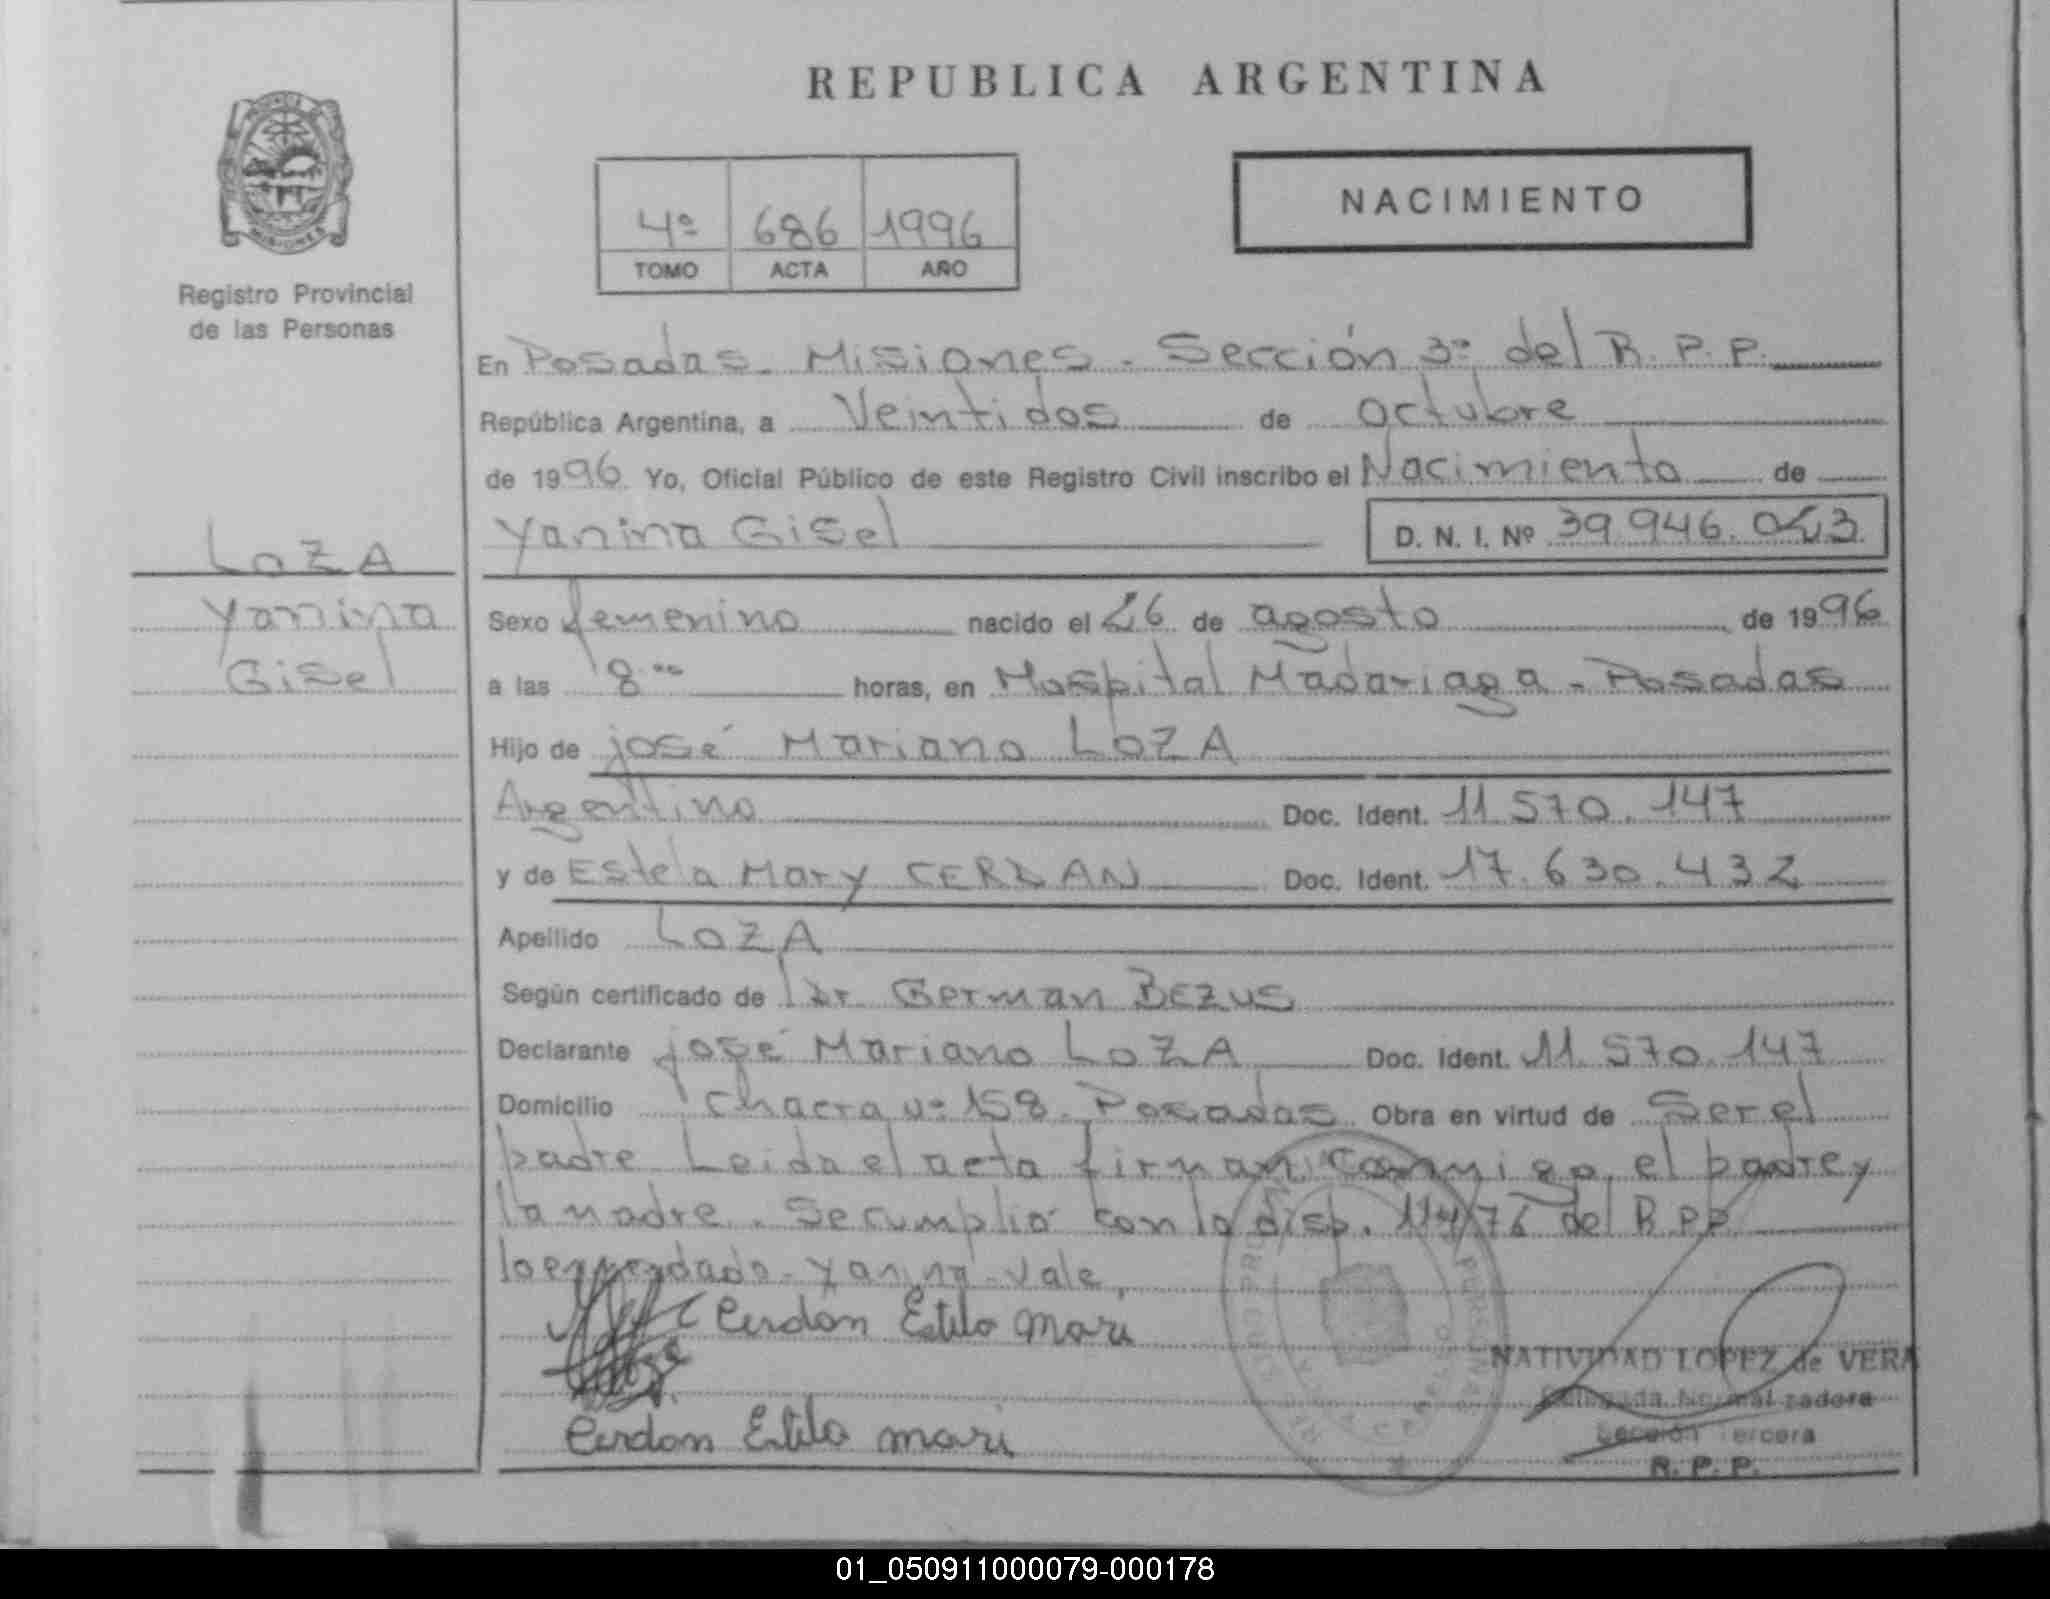 REPUBLICA ARGENTINA
MISIONES
Registro Provincial
de las Personas
4º 686 1996
TOMO ACTA AÑO
NACIMIENTO
En Posadas. Misiones - Sección 3º del R. P. P.
República Argentina, a Veintidos de octubre
de 1996 Yo, Oficial Público de este Registro Civil inscribo el Nacimiento de
Yanina Gisel D. N. I. Nº 39.946.
LOZA
Yanina
Gisel
Sexo femenino nacido el 26 de agosto de 1996
a las 8 horas, en Hospital Madariaga - Posadas
Hijo de josé Mariano LOZA
Argentino Doc. Ident. 11.570.147
y de Estela Mary CERDAN Doc. Ident. 17.630.432
Apellido LOZA
Según certificado de Dr. German BEZUS
Declarante josé Mariano LOZA Doc. Ident. 11.570.147
Domicilio chacra nº 158. Posadas Obra en virtud de Ser el
padre Leida el acta firman conmigo el padre y
la madre. Se cumplió con la disp. del R.P.P
lo enmendado - Yanina - Vale
Cerdan Estila mari
Cerdan Estila mari
NATIVIDAD LOPEZ de VERA
Delegada Normalizadora
Sección Tercera
R. P. P.
01_050911000079-000178